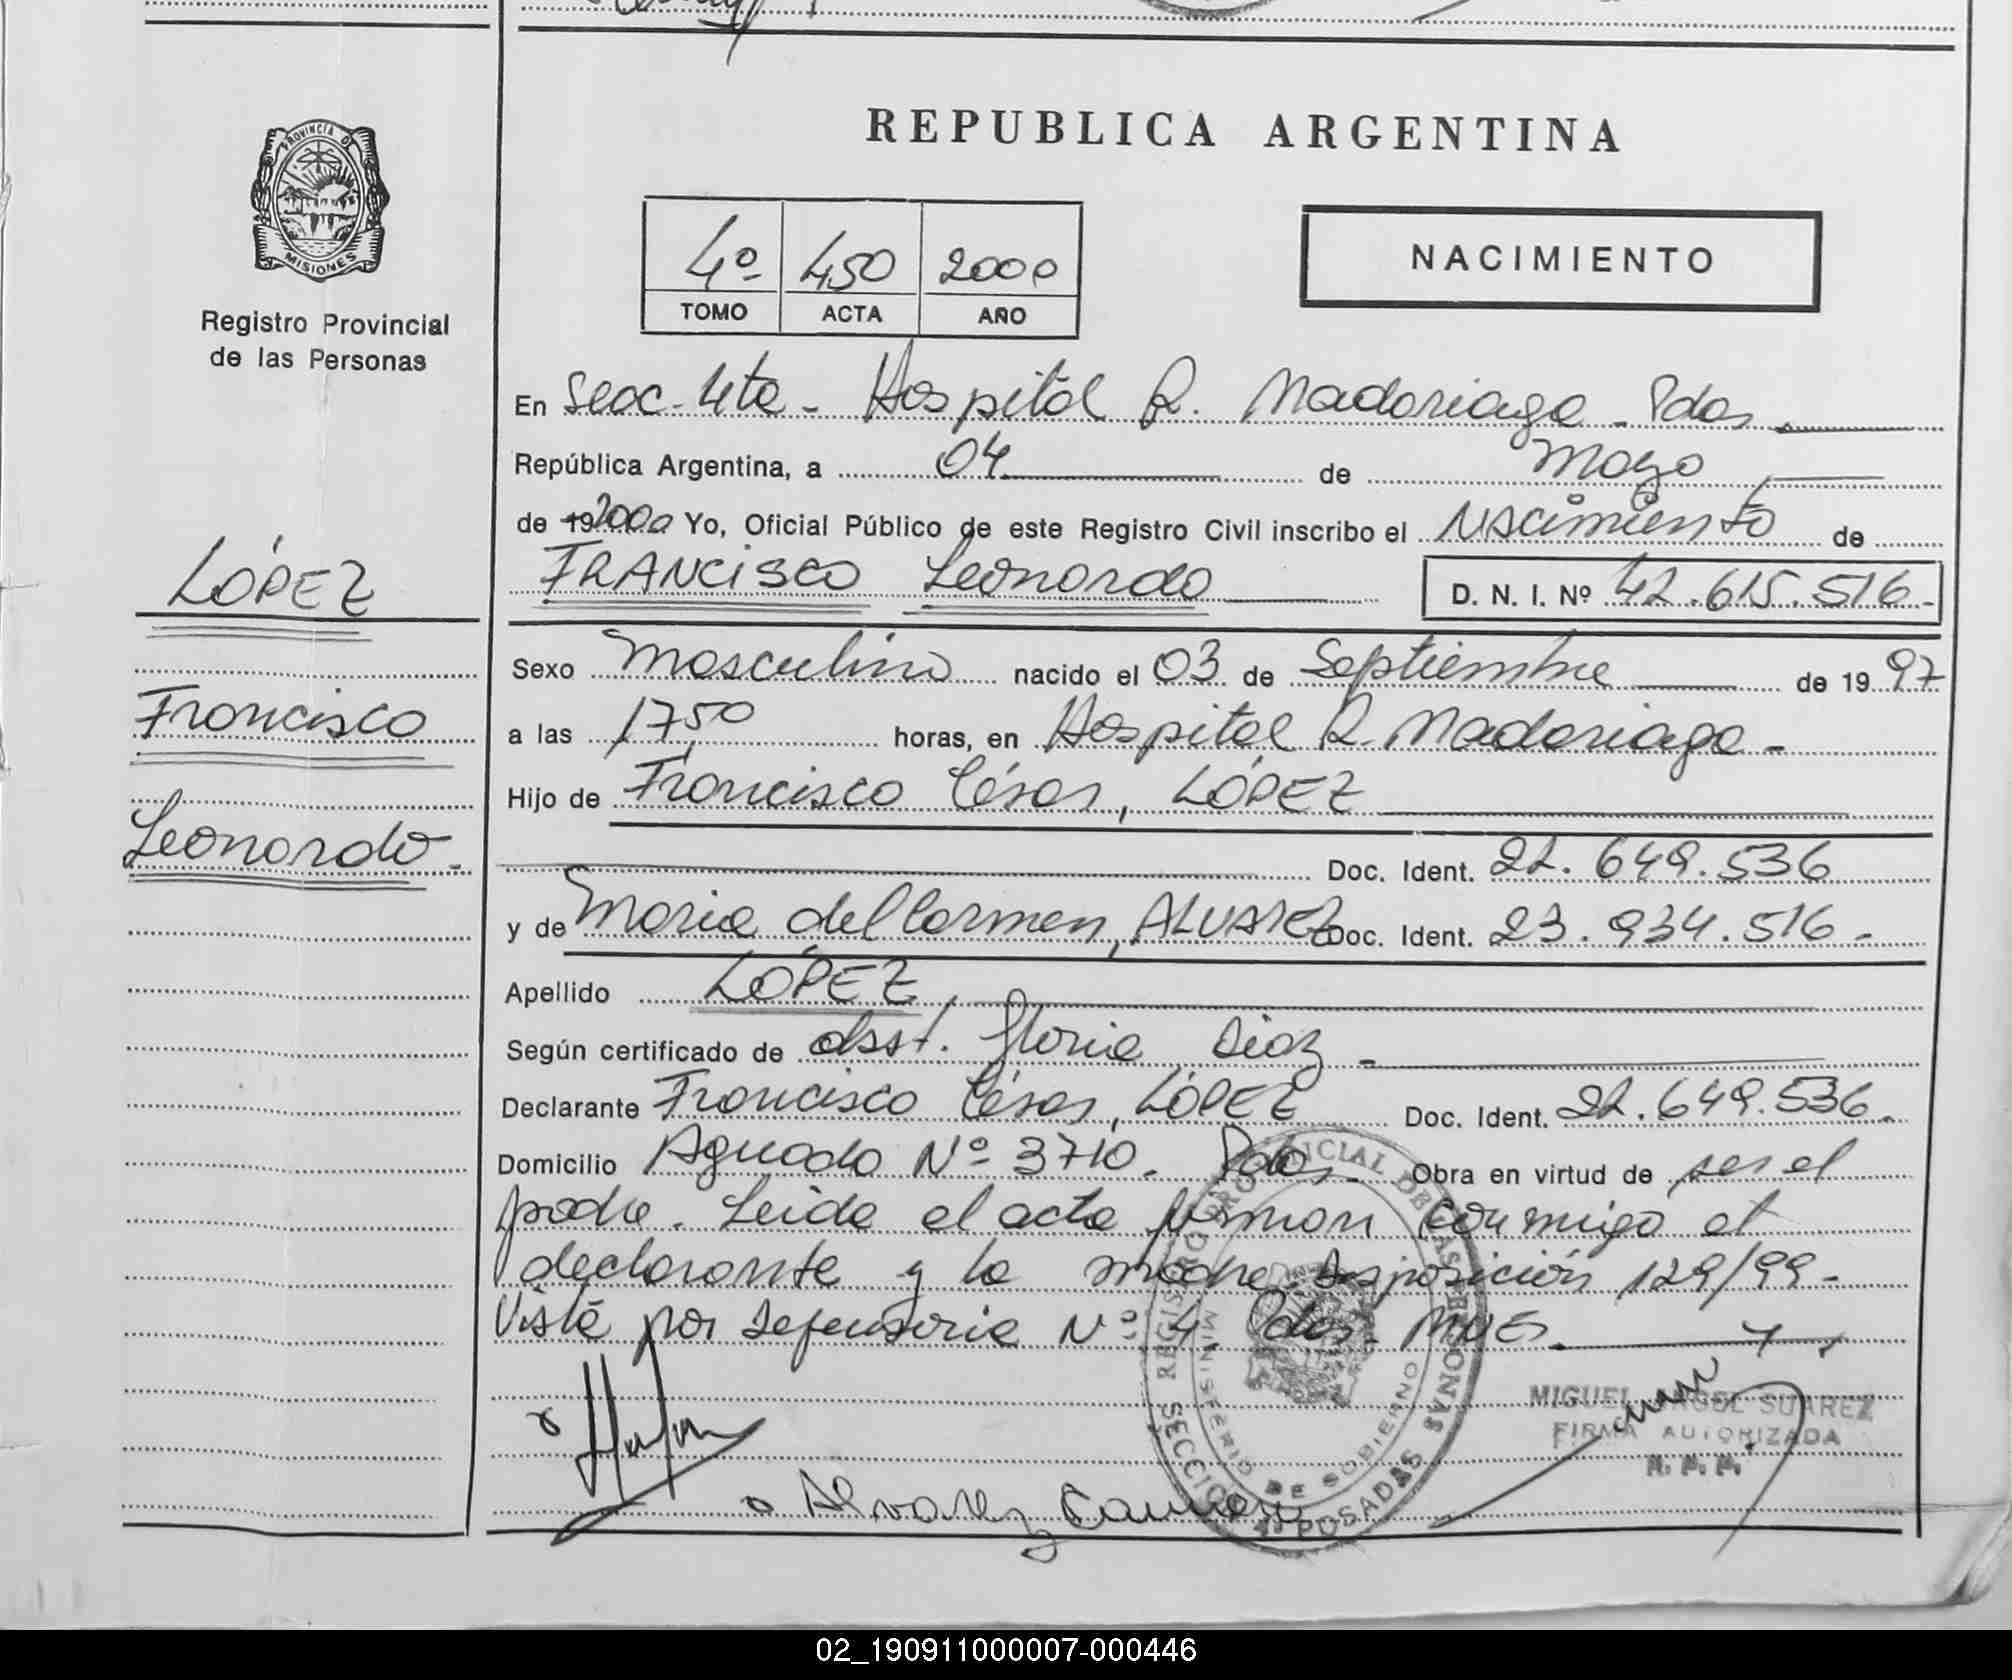 REPUBLICA ARGENTINA
PROVINCIA DE
MISIONES
Registro Provincial
de las Personas
4º 450 2000
TOMO ACTA AÑO
NACIMIENTO
En Secc. 4ta - Hospital R. Madariaga - Pdas
República Argentina, a 04 de Mayo
de 19 2000 Yo, Oficial Público de este Registro Civil inscribo el Nacimiento de
FRANCISCO Leonardo D. N. I. Nº 42.615.516.-
LÓPEZ
Francisco
Leonardo.-
Sexo Masculino nacido el 03 de Septiembre de 19 97
a las 17,50 horas, en Hospital R. Madariaga -
Hijo de Francisco César, LÓPEZ
Doc. Ident. 22.649.536
y de Maria del Carmen, ALVAREZ Doc. Ident. 23.934.516.-
Apellido LÓPEZ,
Según certificado de obst. Gloria Diaz -
Declarante Francisco César, LÓPEZ Doc. Ident. 22.649.536.-
Domicilio Aguado Nº 3710. Pdas. Obra en virtud de ser el
padre. Leida el acta firman conmigo el
declarante y la madre. Disposición 129/99-
Vista por Defensoria Nº 4. Pdas. Mnes.
REGISTRO PROVINCIAL DE LAS PERSONAS
MINISTERIO DE GOBIERNO
SECCION 4ª POSADAS
MIGUEL ANGEL SUAREZ
FIRMA AUTORIZADA
Alvarez Carmen
02_190911000007-000446